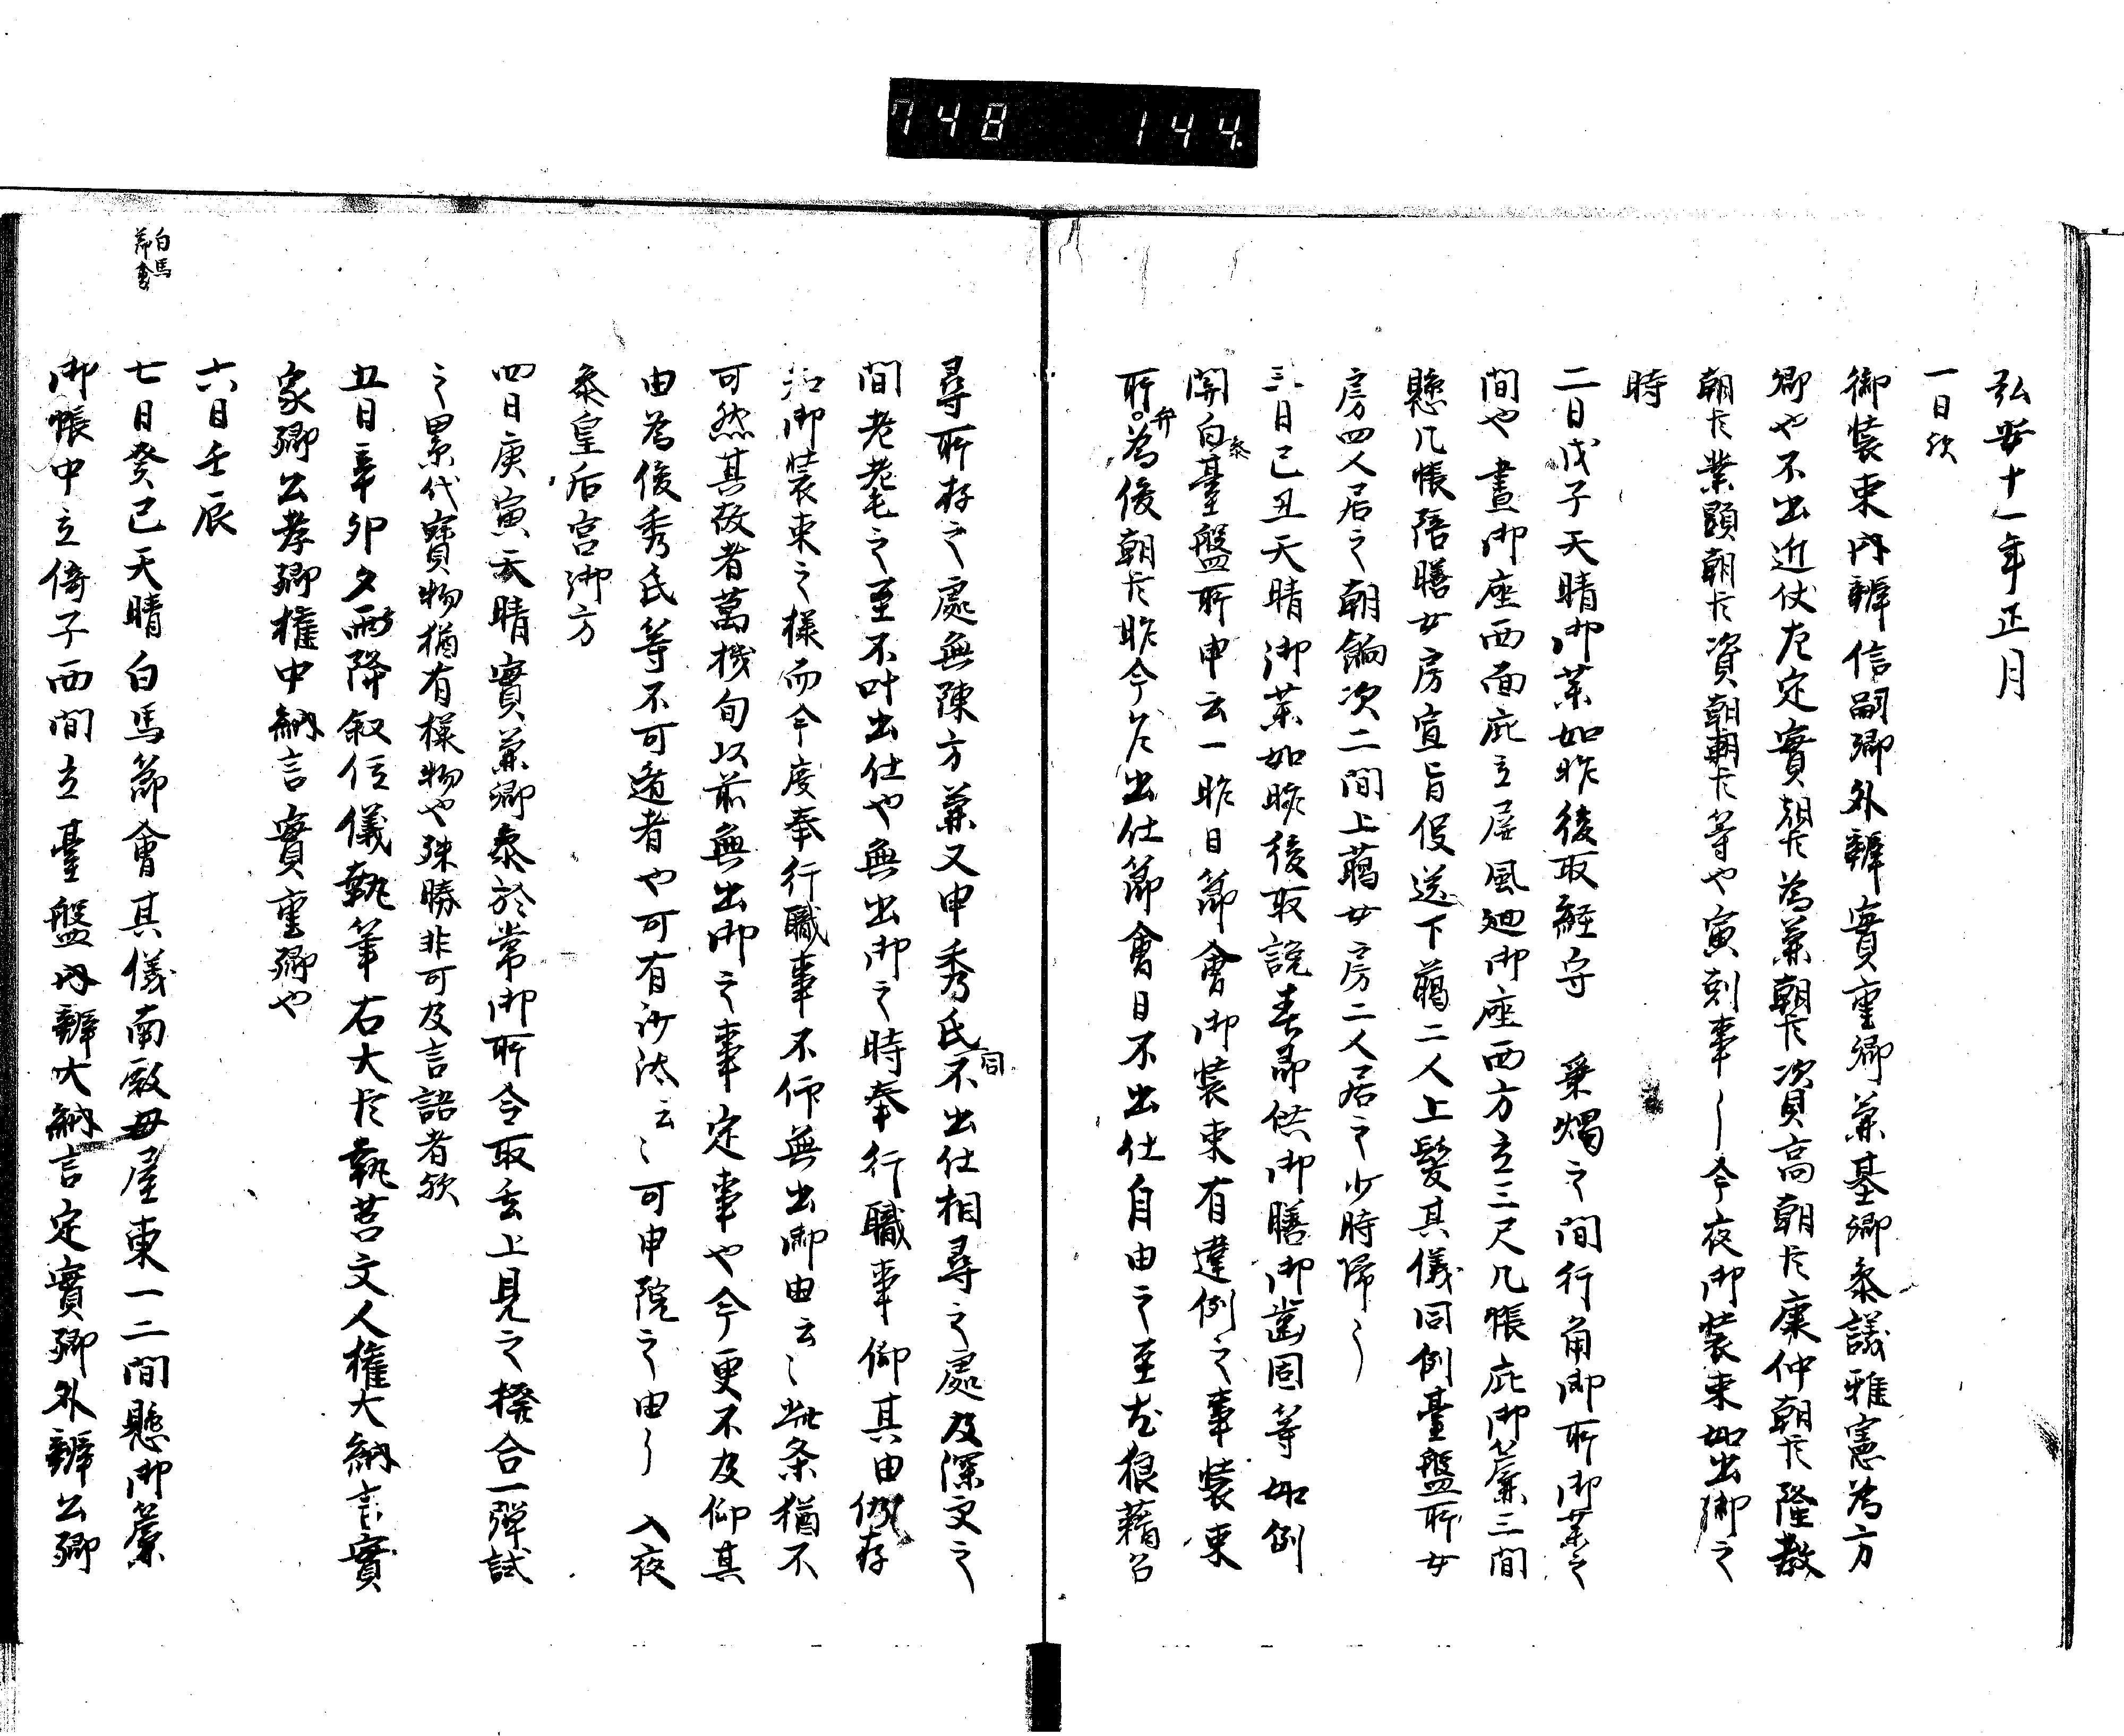 748 144.
弘安十一年正月
一日欤
御装束内辨信嗣卿外辨實重卿兼基卿参議雅憲為方
卿也不出近仗左定實朝臣為兼朝臣資高朝臣康仲朝臣隆教
朝臣業顕朝臣資朝朝臣等也寅刻事〻今夜御装束如出御之
時
二日戊子天晴御薬如昨後取経守 秉燭之間行角御所御薬之
間也晝御座西面庇立屏風廻御座西方立三尺几帳庇御簾三間
懸几帳陪膳女房宣旨役送下臈二人上髪其儀同例臺盤所女
房四人居之朝餉次二間上臈女房二人居之少時帰〻
三日己丑天晴御薬如昨後取説春即供御膳御歯固等如例
関白参臺盤所申云一昨日節會御装束有違例之事装束
所弁為俊朝臣昨今乍出仕節會日不出仕自由之至尤狼藉召
尋所存之處無陳方兼又申秀氏同不出仕相尋之處及深更之
間老耄之至不叶出仕也無出御之時奉行職事仰其由仍存
知御装束之様而今度奉行職事不仰無出御由云〻此条猶不
可然其故者萬機旬以前無出御之事定事也今更不及仰其
由為俊秀氏等不可遁者也可有沙汰云〻可申院之由〻 入夜
参皇后宮御方
四日庚寅天晴實兼卿参於常御所令取玄上見之撥合一弾試
之累代寶物猶有様物也殊勝非可及言語者欤
五日辛卯夕雨降叙位儀執筆右大臣執筥文人権大納言實
家卿公孝卿権中納言實重卿也
六日壬辰
白馬
節會
七日癸巳天晴白馬節會其儀南殿母屋東一二間懸御簾
御帳中立倚子西間立臺盤内辨大納言定實卿外辨公卿